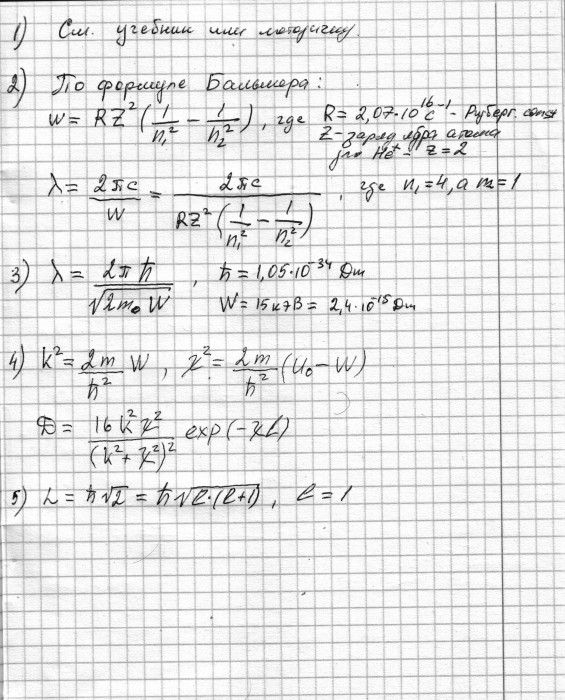 1) См. учебник или методичку.
2) По формуле Бальмера:
W = RZ² (1/n₁² − 1/n₂²), где R = 2,07·10¹⁶ с⁻¹ - Ридберг. const
Z - заряд ядра атома
для He⁺ - z = 2
λ = 2πc/W = 2πc/(RZ² (1/n₁² − 1/n₂²)), где n₁ = 4, а n₂ = 1
3) λ = 2πħ/√(2m₀W), ħ = 1,05·10⁻³⁴ Дж
W = 15кэВ = 2,4·10⁻¹⁵ Дж
4) k² = 2m/ħ² W, χ² = 2m/ħ² (U₀ − W)
D = 16k²χ²/(k² + χ²)² exp(−χL)
5) L = ħ√2 = ħ√(l·(l+1)), l = 1